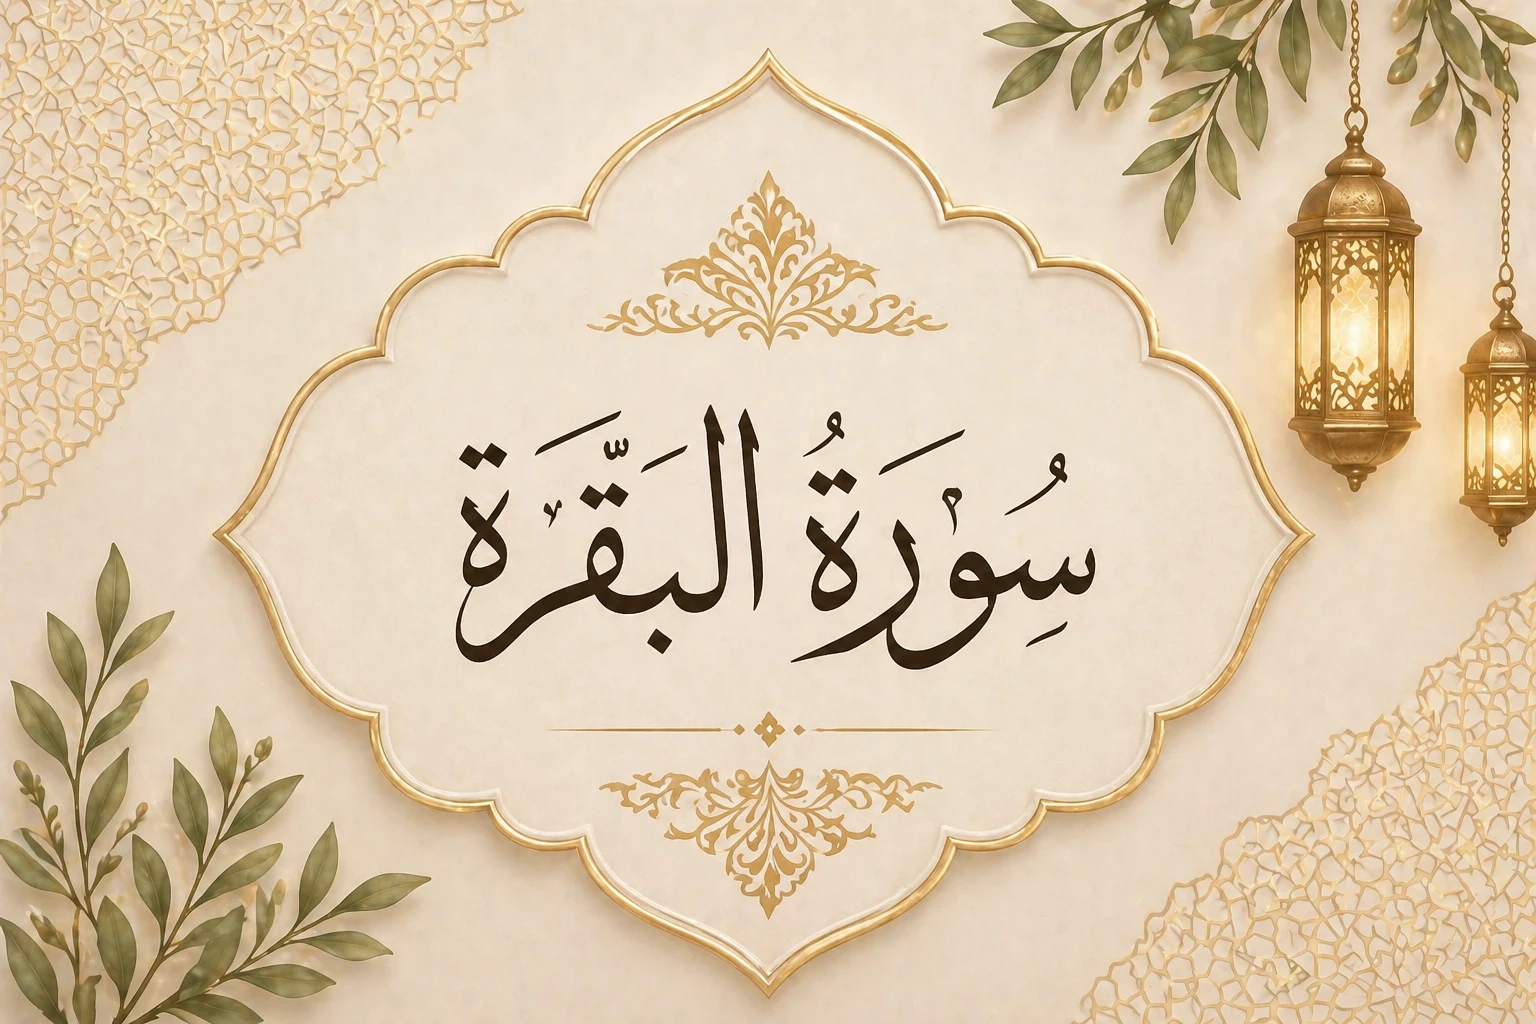 سُِوْرَةُ البَقَّرَة